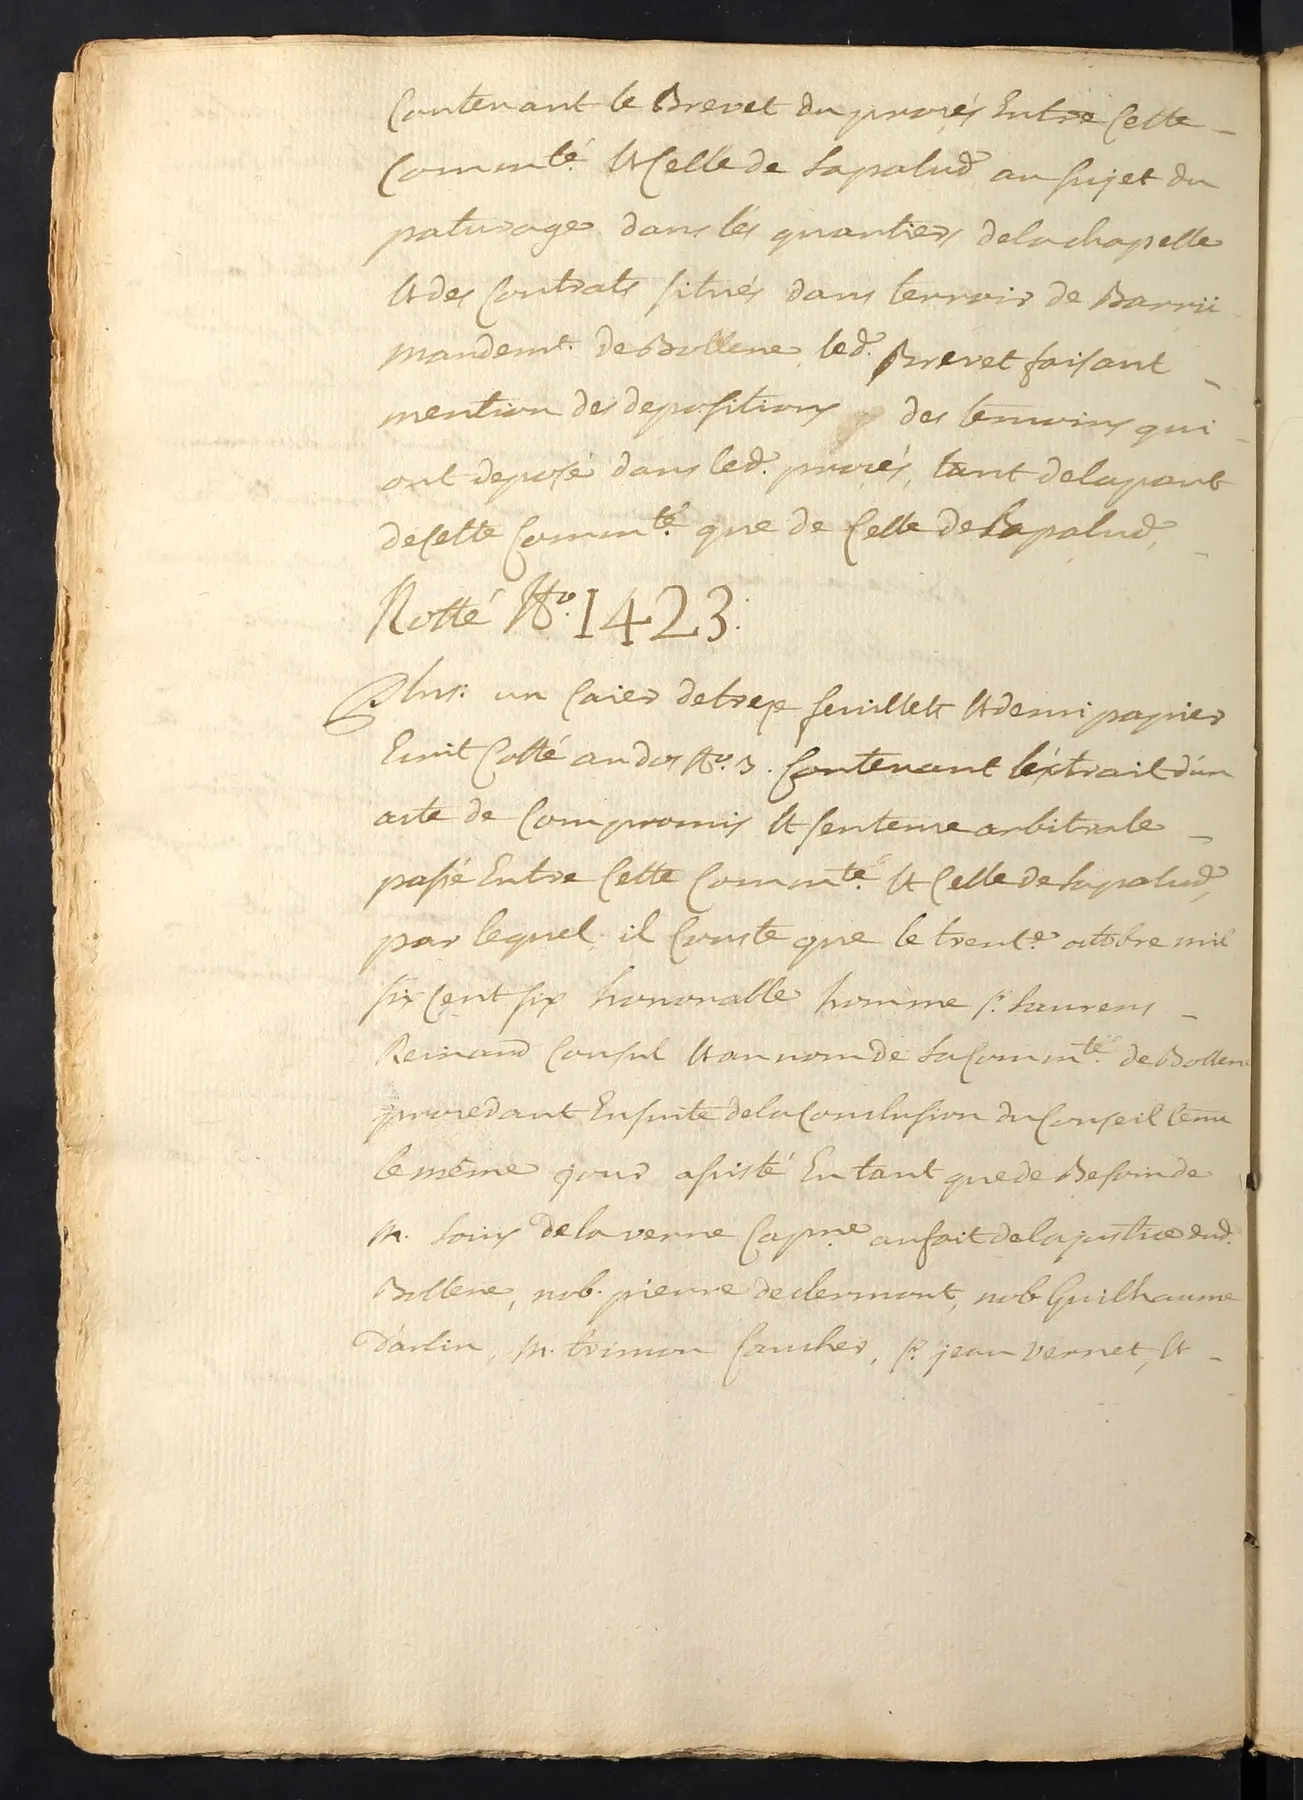 Contenant le Brevet du procés Entre Cette
Commté. Et Celle de Lapalud au sujet du
paturage dans les quartiers de la chapelle
Et des Contrats situés dans terroir de Barri
mandemt. de Bollene, led. Brevet faisant
mention des depositions des temoins qui
ont deposé dans led. procés, tant de la part
de Cette Commté. que de Celle de Lapalud,
Notté No. 1423.
Plus: un Caier de treze feuillets Et demi papier
Ecrit Cotté au dos No. 3. Contenant l'éxtrait d'un
acte de Compromis Et sentence arbitrale
passé Entre Cette Commté. Et Celle de Lapalud,
par lequel il Conste que le trente. octobre mil
six Cent six honnorable homme sr. Laurens
Reinaud Consul Et au nom de La Commté. de Bollene
procedant Ensuite de la Conclusion du Conseil tenu
le même jour assisté En tant que de Besoin de
m. Louis de la verne Capne. au fait de la justice dud.
Bollene, nob. pierre de clermont, nob Guilhaume
D'arlin, m. trimon faucher, sr. jean Vernet, Et